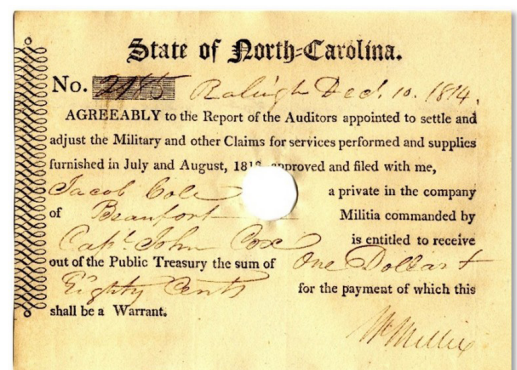 State of North-Carolina.
No. 2185 Raleigh Dec. 10. 1814.
AGREEABLY to the Report of the Auditors appointed to settle and
adjust the Military and other Claims for services performed and supplies
furnished in July and August, approved and filed with me,
Jacob Cole a private in the company
of Beaufort Militia commanded by
Capt. John Cox is entitled to receive
out of the Public Treasury the sum of One Dollar &
Eighty Cents for the payment of which this
shall be a Warrant.